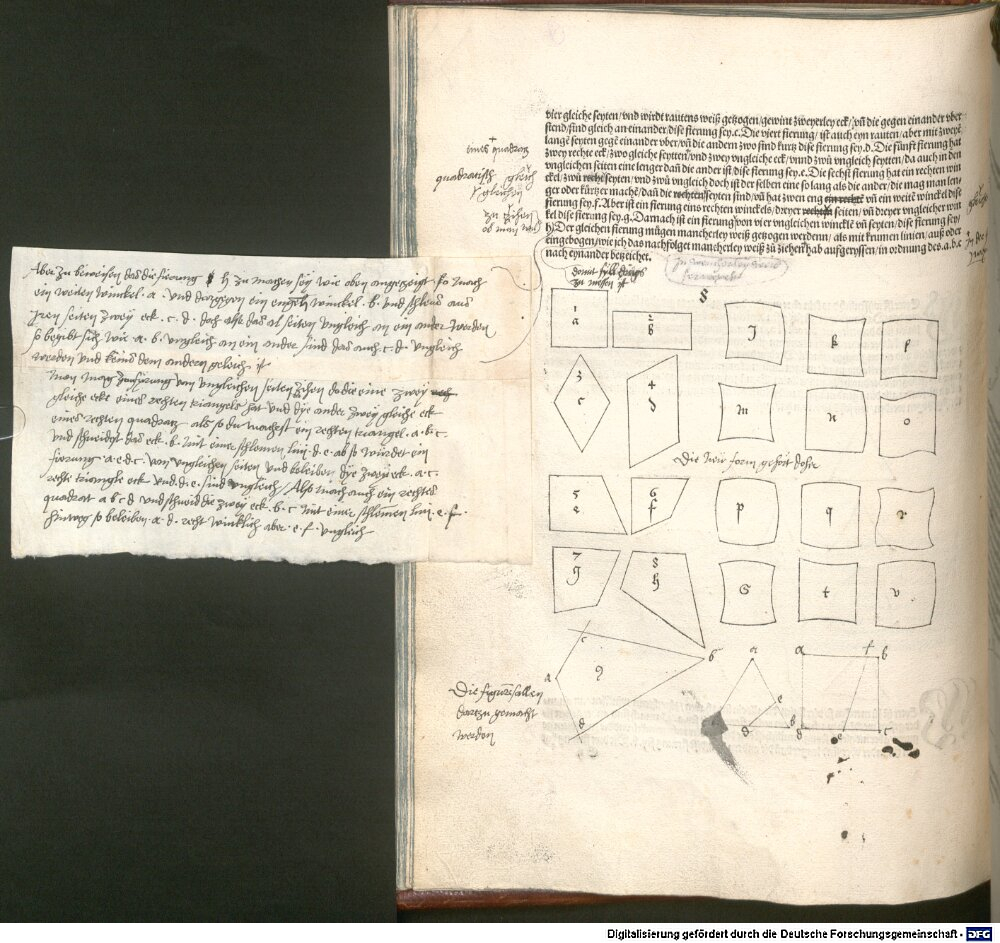 vier gleiche seyten/vnd wirdt rautens weiß getzogen/gewint zweyerley eck/vñ die gegen einander vber
stend/sind gleich an einander/dise fierung sey.c. Die viert fierung/ist auch eyn rauten/aber mit zweyẽ
lange seyten gegẽ einander vber/vñ die andern zwo sind kurtz dise fierung sey.d. Die fünfft fierung hat
zwey rechte eck/zwo gleiche seytten vnd zwey vngleiche eck/vnnd zwů vngleich seytten/da auch in den
vngleichen seiten eine lenger dañ die ander ist/dise fierung sey.e. Die sechst fierung hat ein rechten win
ckel/zwů rechte seyten/vnd zwů vngleich doch ist der selben eine so lang als die ander/die mag man len
ger oder kürtzer machẽ/dañ die rechten seyten sind/vñ hat zwen eng ein rechtẽ vñ ein weitẽ winckel dise
fierung sey.f. Aber ist ein fierung eins rechten winckels/dreyer rechten seiten/vñ dreyer vngleicher win
kel dise fierung sey.g. Darnach ist ein fierung von vier vngleichen wincklẽ vñ seyten/dise fierung sey/
h) Der gleichen fierung mügen mancherley weiß getzogen werdenn/als mit krumen linien/auß oder
eingebogen/wie jch das nachfolget mancherley weiß zů ziehen hab auffgeryssen/in ordnung des.a.b.c
nach eynander betzeichet.
eines quadratz
quadratisch gleich
zu zihen
Aber zu beweisen das die fierung h zu machen sey wie oben angezeigt so mach
ein weiten winckel · a · vnd dargegen ein engen winckel · b · vnd schleus aus
jren seiten zwey eck · c · d · doch alse das al seiten vngleich an ein ander werden
so begibt sich wie · a · b · vngleich an ein ander sind das auch · c · d · vngleich
werden vnd keins dem andern geleich ist
Man mag fierung von vngleichen seiten zihen do die eine zwey
gleiche eck eines rechten triangels hat vnd dye ander zwey gleiche eck
eines rechten quadratz als so du machest ein rechten triangel · a · b · c ·
vnd schneidest das eck · b · mit einer schlemen lini · d · e · ab so wurdet ein
fierung · a · e · d · c · von vngleichen seiten vnd beleiben dye zwey eck · a · c ·
rechte triangle eck vnd · d · e · sind vngleich / Also mach auch ein rechtes
quadrat a b c d vnd schneid die zwey eck · b · c mit einer schlemen lini · e · f ·
hinweg so beleiben · a · d · recht wincklich aber · e · f · vngleich
zu messen ist
§
1
a
2
b
J
k
l
3
c
4
d
m
n
o
Die new form gehört doher
5
e
6
f
p
q
r
7
g
8
h
G
t
v
c
a
9
b
d
a
e
d
b
a
f
b
d
e
c
Die figuren sollen
dartzu gemacht
werden
Digitalisierung gefördert durch die Deutsche Forschungsgemeinschaft - DFG